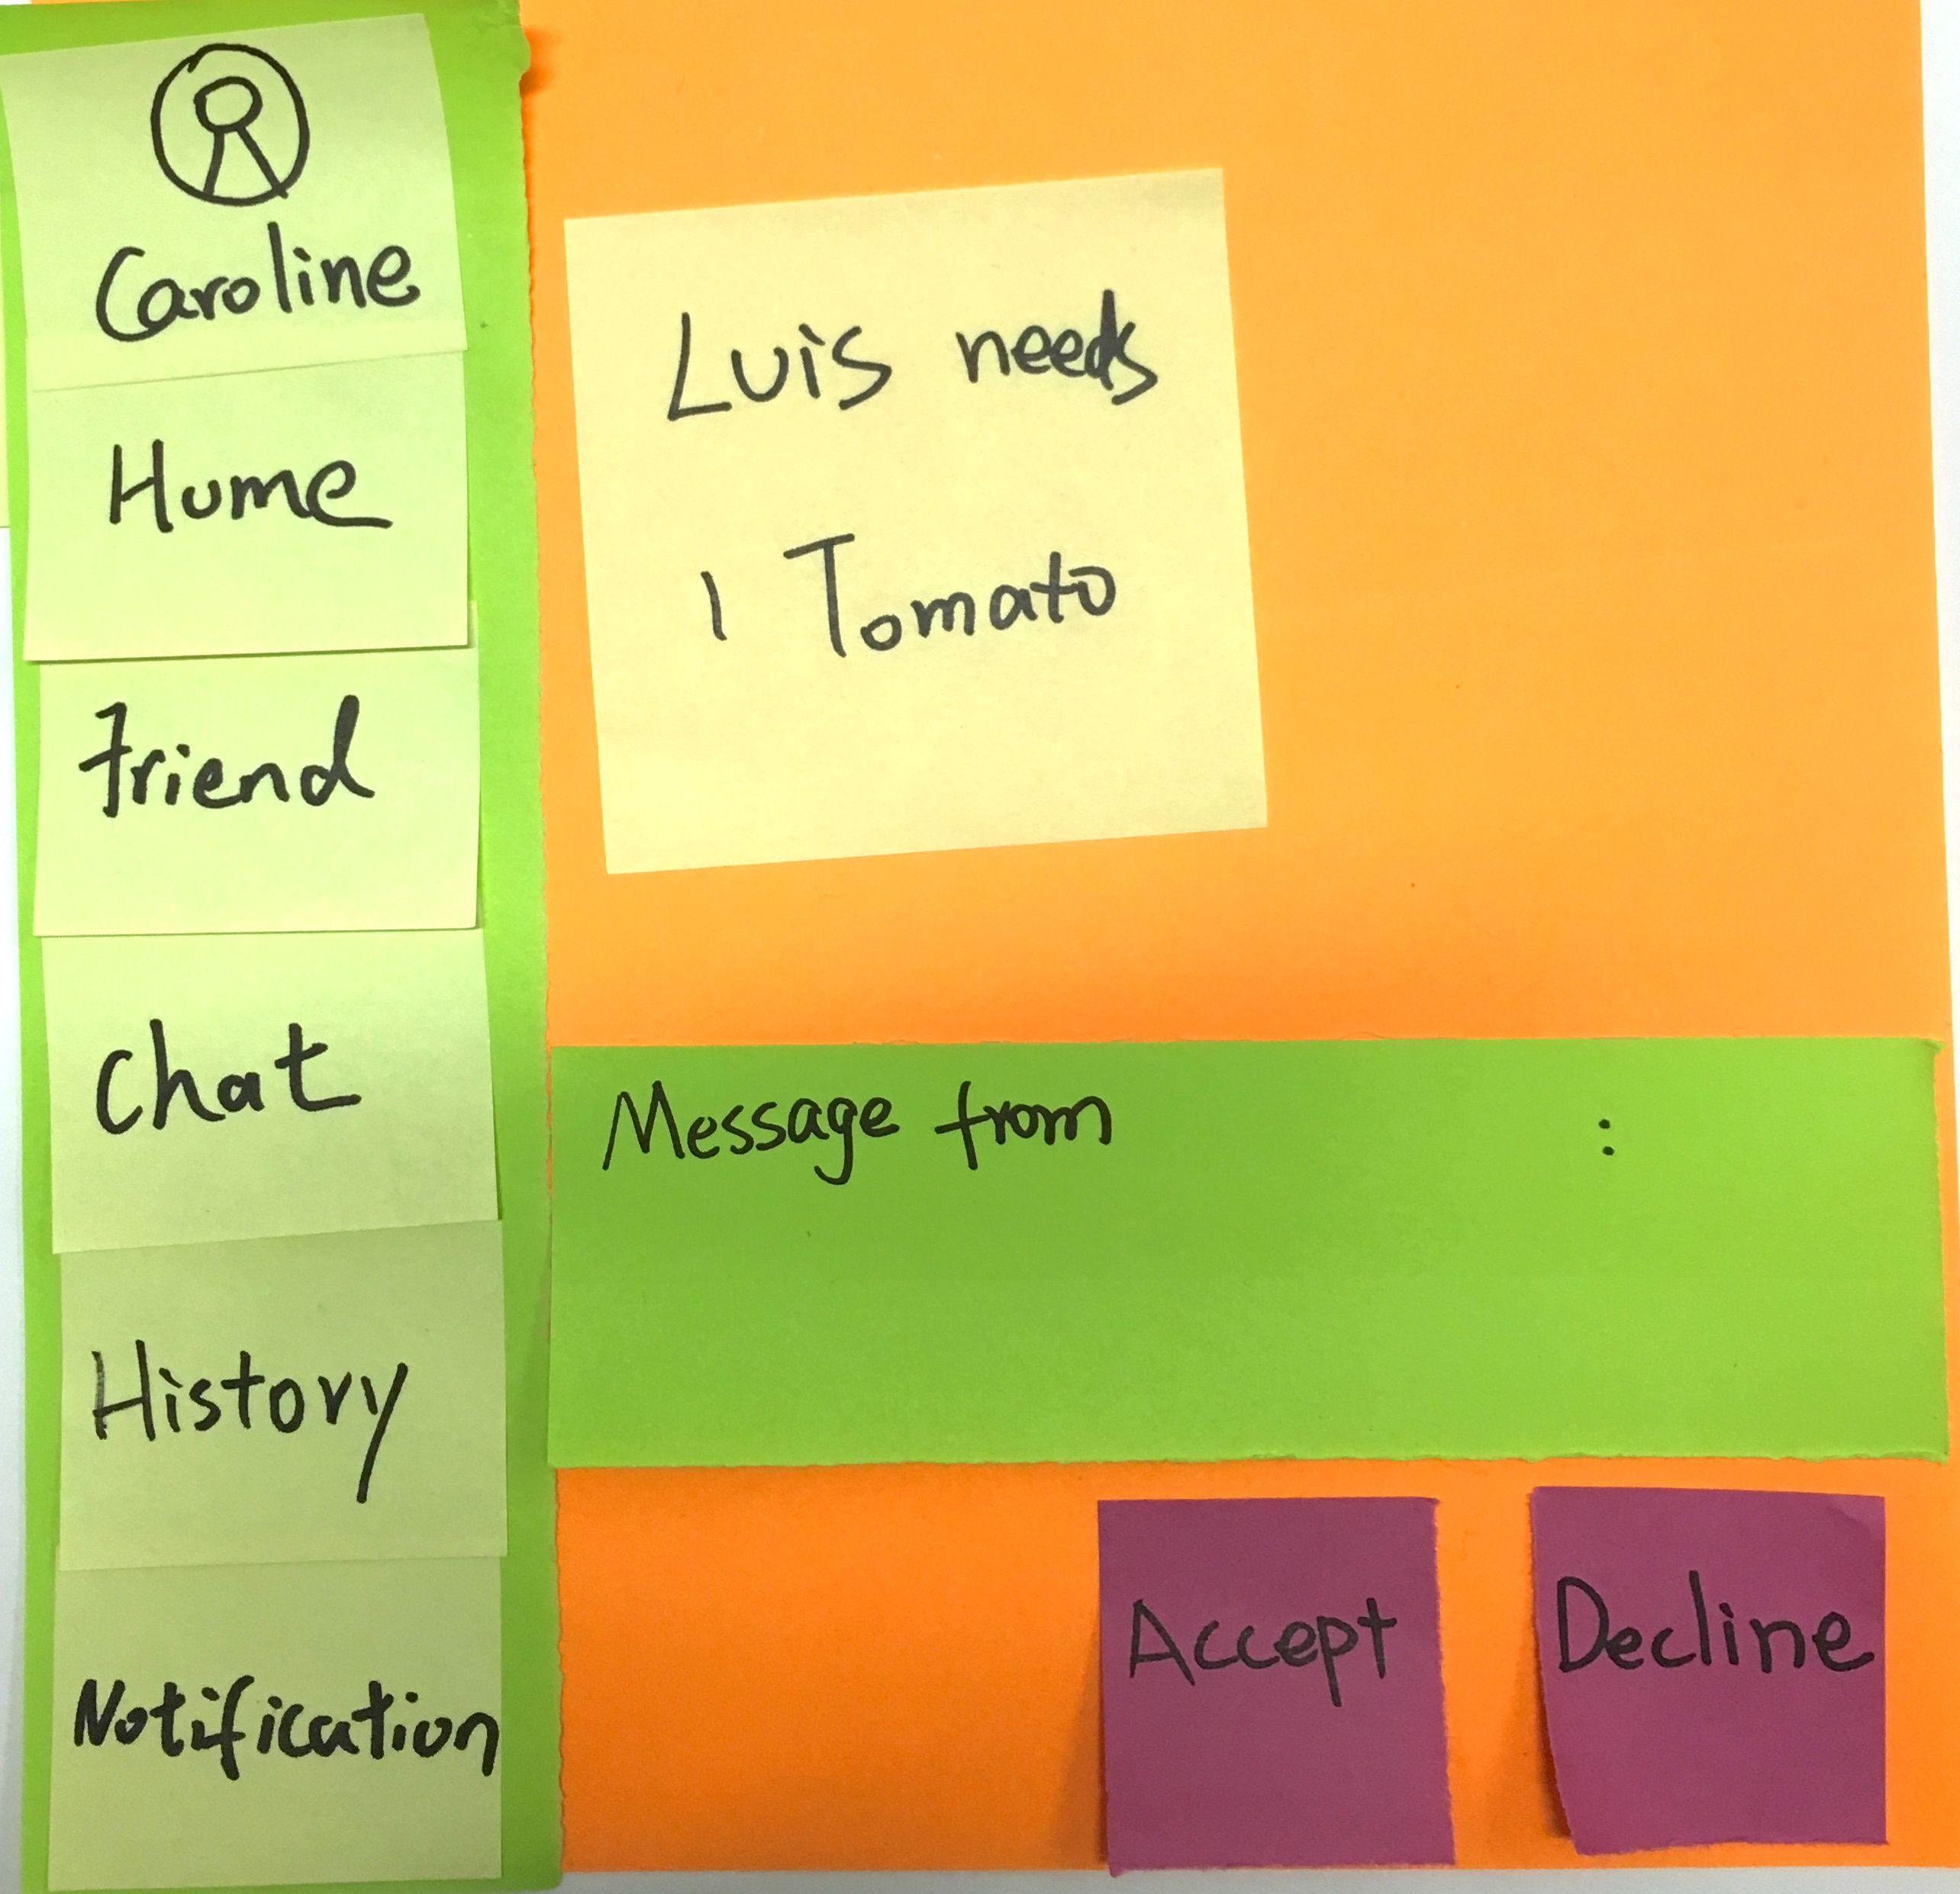 Caroline
Home
Friend
Chat
History
Notification
Luis needs
1 Tomato
Message from :
Accept
Decline